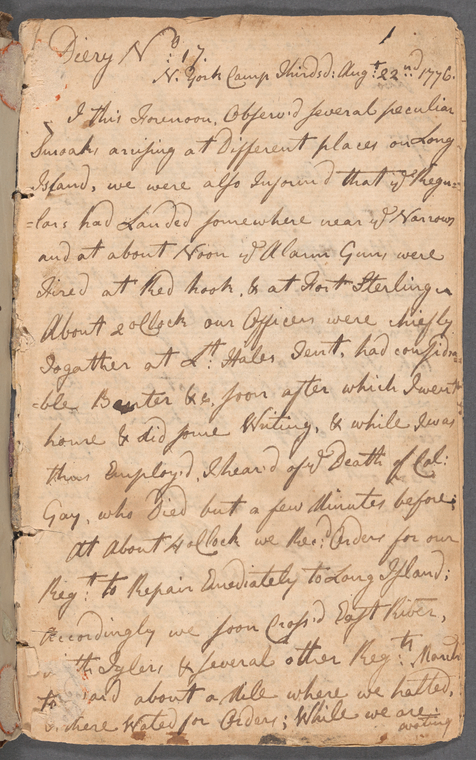 1
Diery No 17.
N. York Camp Thirdsd: Augt 22nd 1776.
I this Forenoon, Observ'd several peculiar
Smoaks arrising at Different places on Long
Island, we were also Inform'd that ye Regu=
=lars had Landed somewhere near ye Narrows
and at about Noon ye Alarm Guns were
Fired at Red hook, & at Fort Sterling
About 2 oClock our Officers were chiefly
Togather at Lt. Hales Tent, had considra
=ble Banter &c, soon after which I went
home & did some Writing, & while I was
thus Employ'd, I hear'd of ye Death of Col:
Gay, who Died but a few Minutes before;
At About 4 oClock we Recd. Orders for our
Regt. to Repair Emediately to Long Island;
Accordingly we soon Cross'd East River,
with Tylers & several other Regts: March
to and about a Mile where we halted,
& there Wated for Orders; While we are
waiting